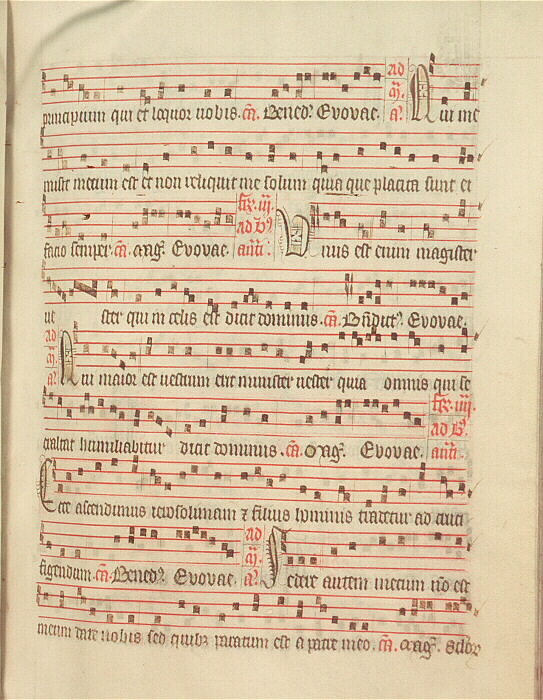 principium qui et loquor vobis. cā. Bened². Evovae. ad m̄. a². Qui me
misit mecum est et non reliquit me solum quia que placita sunt ei
facio semper. cā. mag̃. Evovae. fer̃. iij. ad b² añ. Unus est enim magister
ve ster qui in celis est dicit dominus. cā. Bñdict². Evovae.
ad m̄. a². Qui maior est vestrum erit minister vester quia omnis qui se
exaltat humiliabitur dicit dominus. cā. mag̃. Evovae. fer̃. iiij. ad b². añ.
Ecce ascendimus ierosolimam ⁊ filius hominis tradetur ad cruci
figendum. cā. Bened². Evovae. ad m̄. a². Sedere autem mecum nō est
meum dare vobis sed quibꝫ paratum est a patre meo. cā. mag̃.